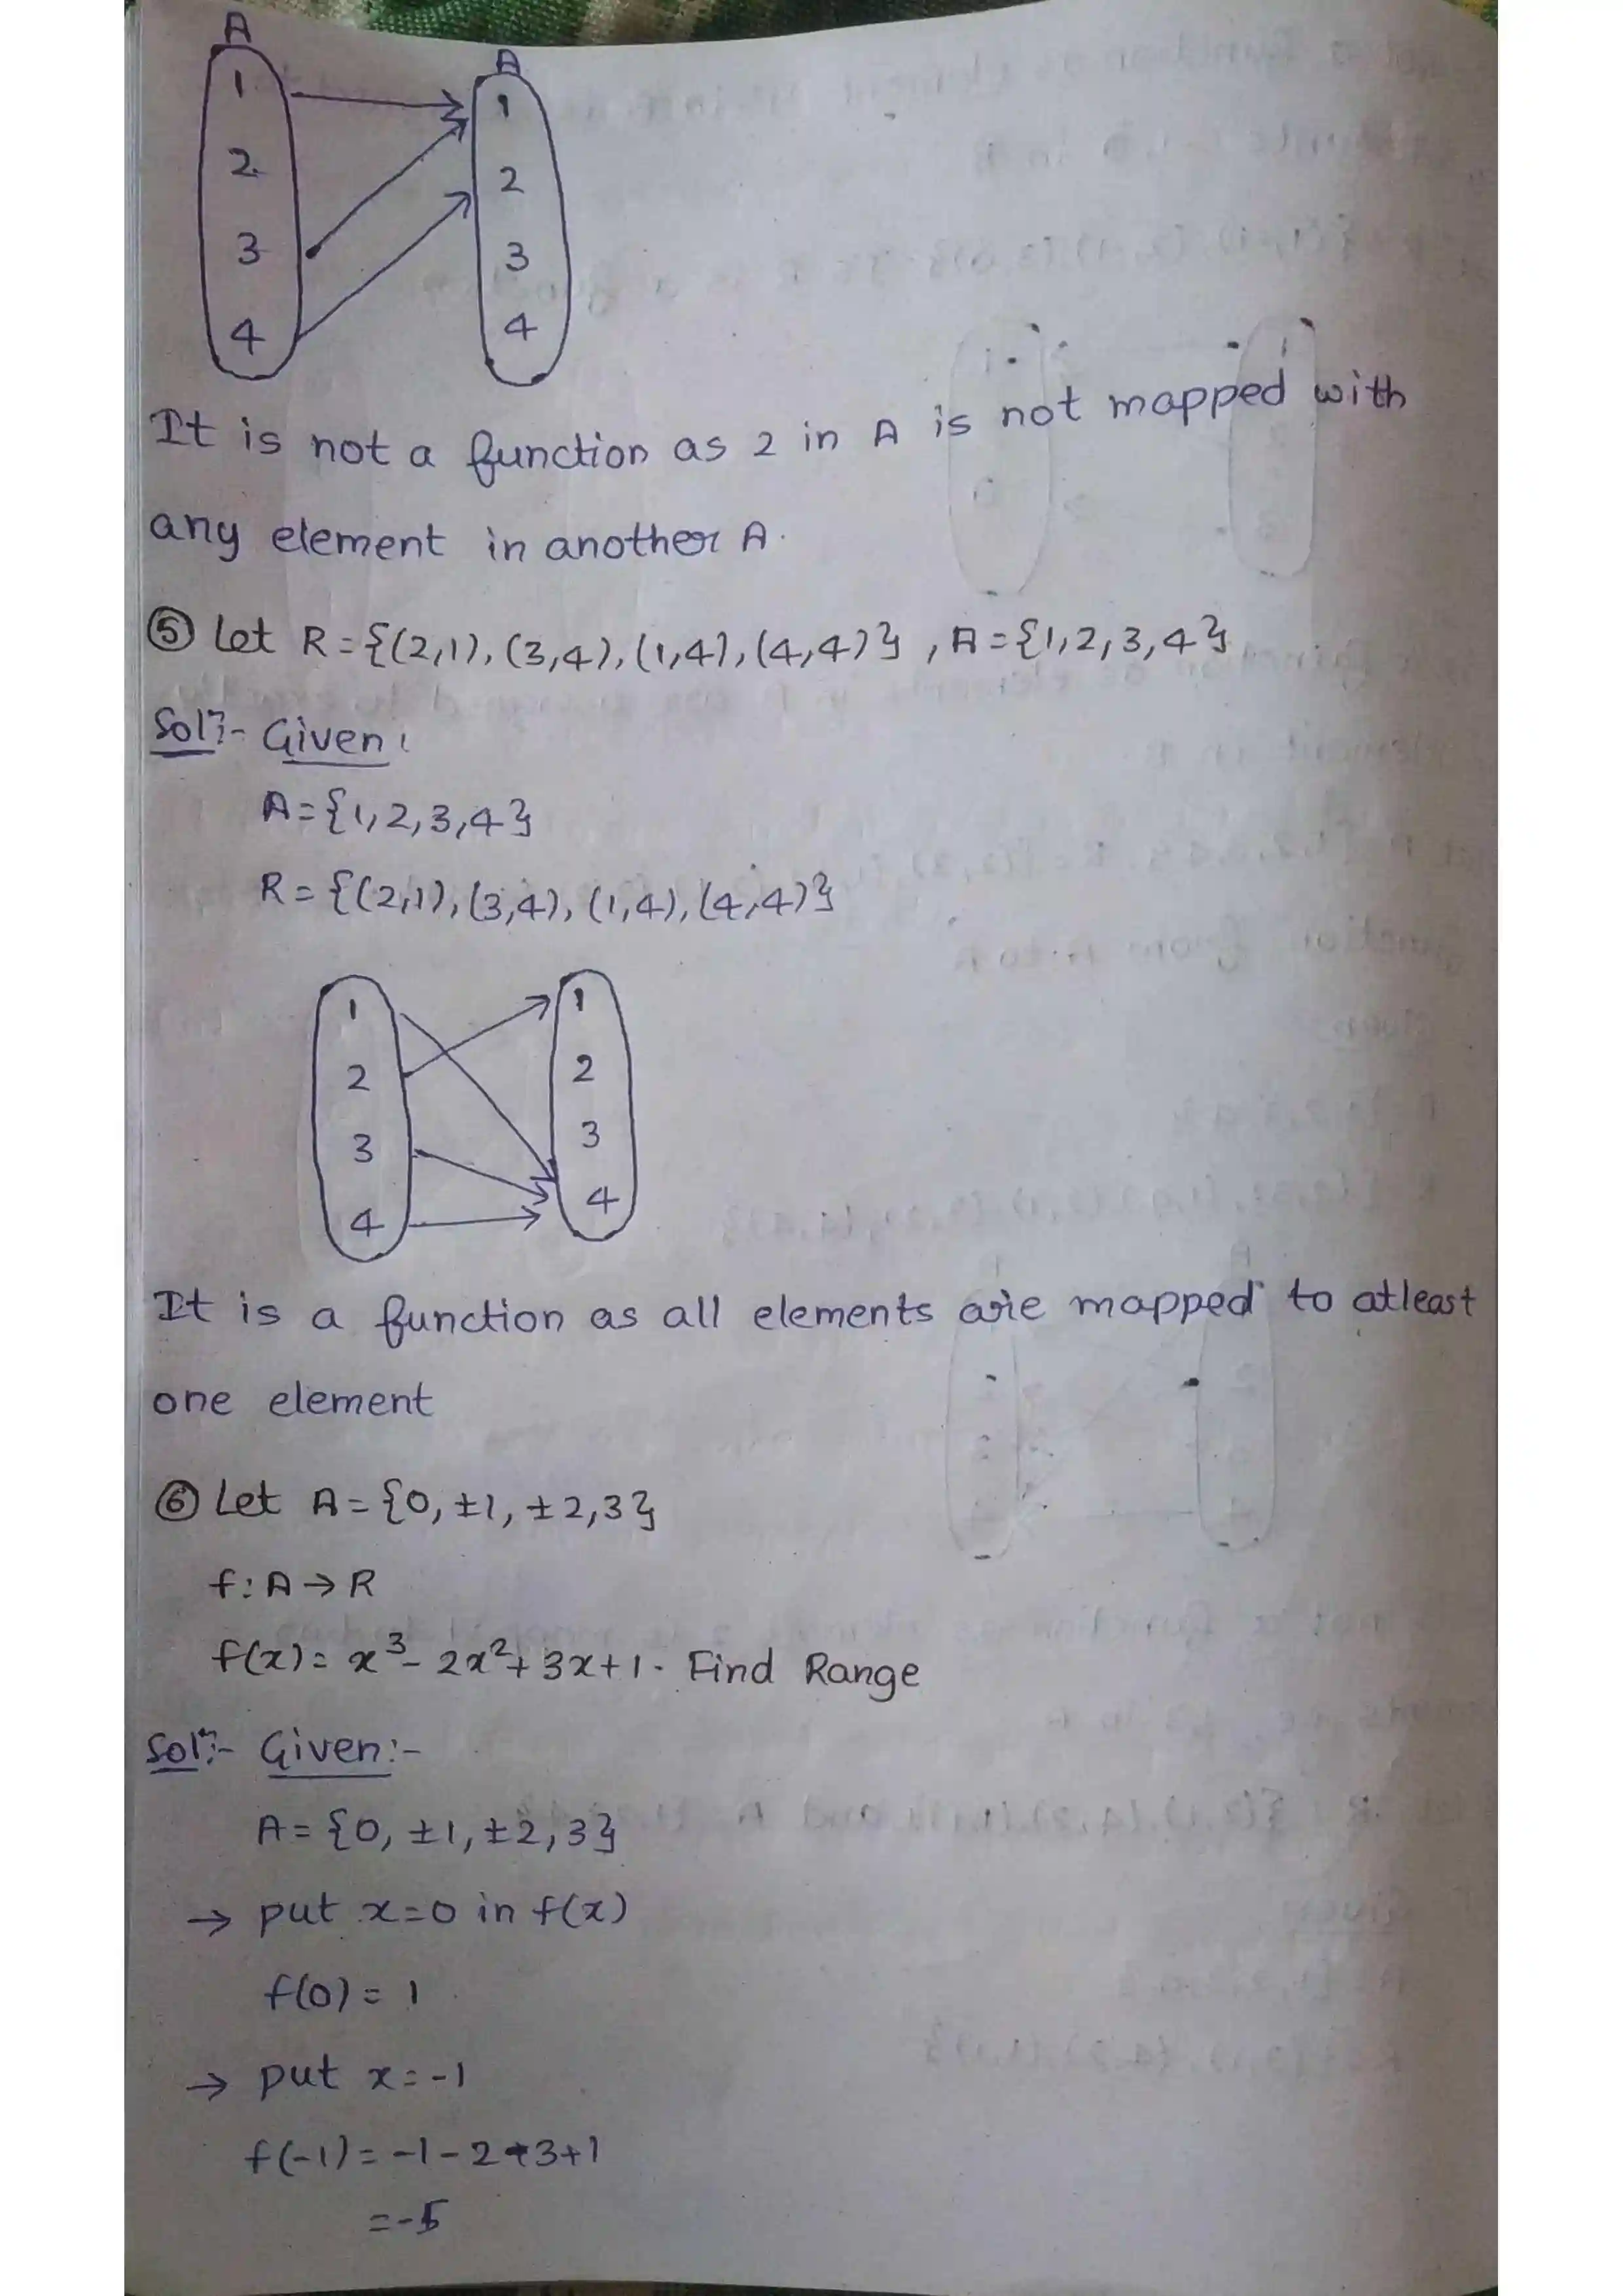 A
A
1
2
3
4
1
2
3
4
It is not a function as 2 in A is not mapped with
any element in another A.
⑤ Let R = {(2,1), (3,4), (1,4), (4,4)}, A = {1,2,3,4}
Solⁿ:- Given:
A = {1,2,3,4}
R = {(2,1), (3,4), (1,4), (4,4)}
1
2
3
4
1
2
3
4
It is a function as all elements are mapped to atleast
one element
⑥ Let A = {0, ±1, ±2, 3}
f: A → R
f(x) = x³ - 2x² + 3x + 1. Find Range
Solⁿ:- Given:-
A = {0, ±1, ±2, 3}
→ put x=0 in f(x)
f(0) = 1
→ put x = -1
f(-1) = -1 - 2 + 3 + 1
= -5